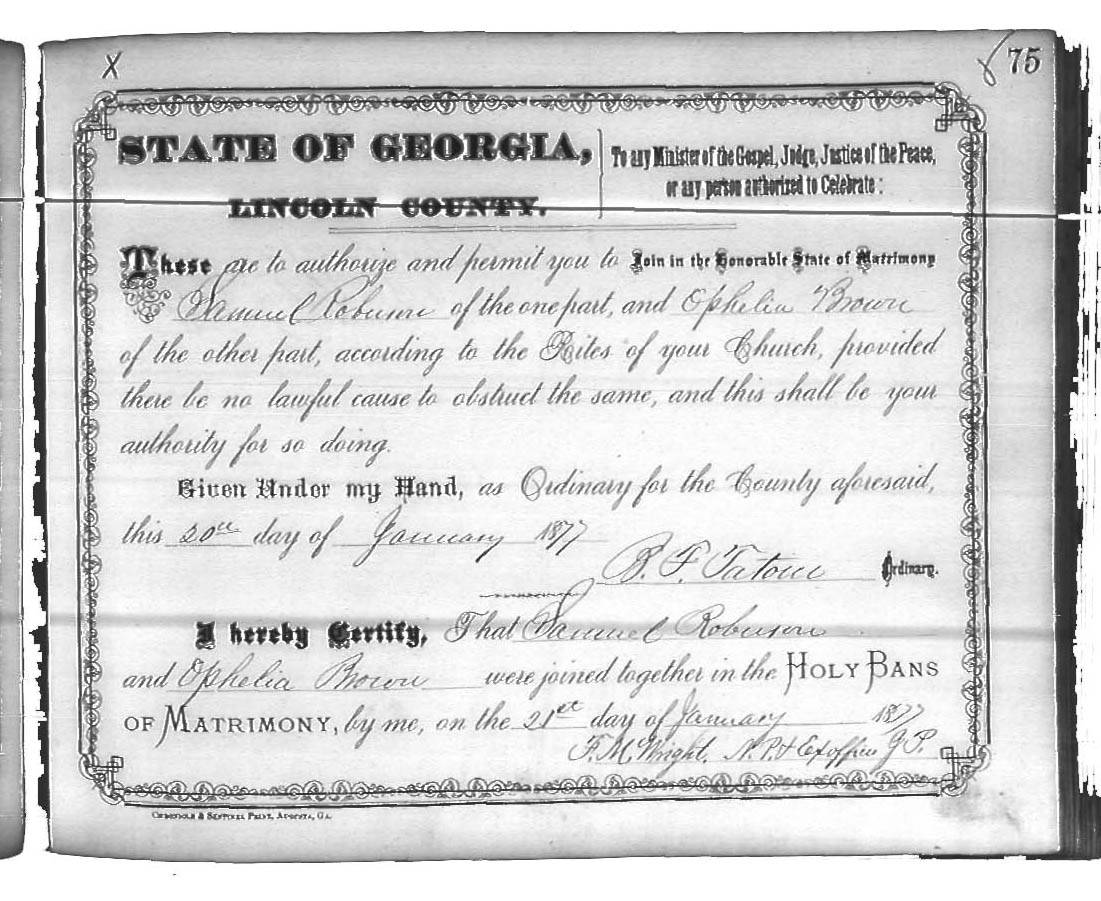 X
75
STATE OF GEORGIA,
LINCOLN COUNTY.
To any Minister of the Gospel, Judge, Justice of the Peace,
or any person authorized to Celebrate:
These are to authorize and permit you to Join in the Honorable State of Matrimony
Samuel Robinson of the one part, and Ophelia Brown
of the other part, according to the Rites of your Church, provided
there be no lawful cause to obstruct the same, and this shall be your
authority for so doing.
Given Under my Hand, as Ordinary for the County aforesaid,
this 20th day of January 1877
B. F. Tatom Ordinary.
I hereby Certify, That Samuel Robinson
and Ophelia Brown were joined together in the HOLY BANS
OF MATRIMONY, by me, on the 21st day of January 1877
F. M. Wright, N. P. & Ex officio J P.
CHRONICLE & SENTINEL PRINT, AUGUSTA, GA.